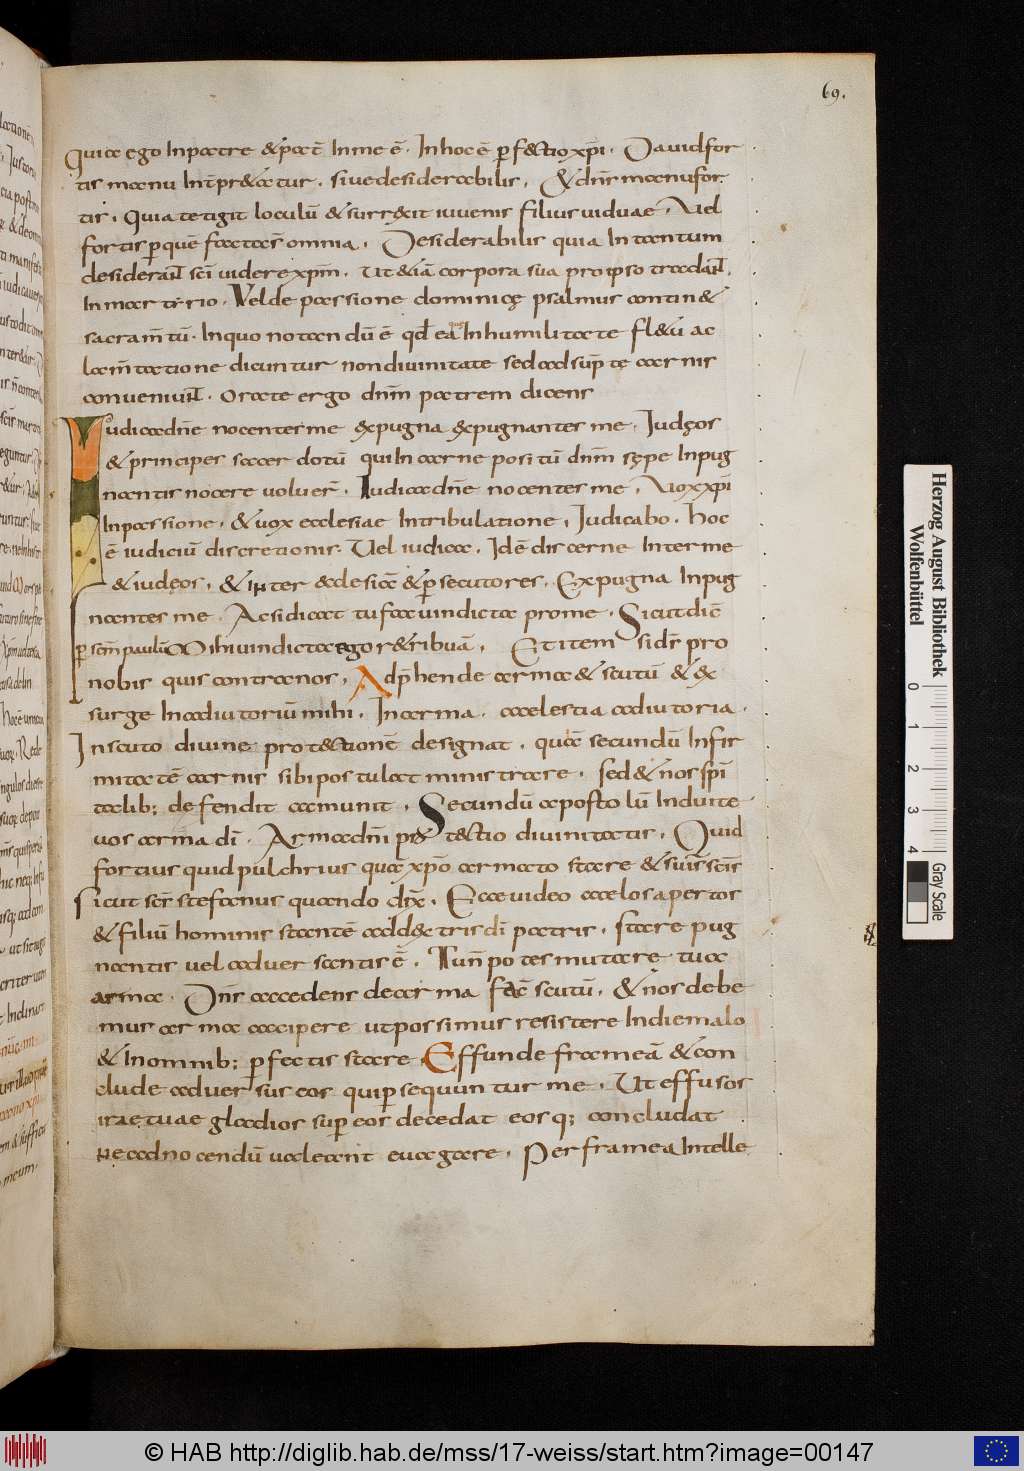 69.
Quia ego In patre & pat̄ In me ē. In hoc ē p̱fectio xp̄i. Dauid for
tis manu Int̄pr&atur. siue desiderabilis. & dn̄s manu for
tis. Quia tetigit loculū & surrexit iuuenis filius uiduae. Vel
fortis p̱ quē facta s̄ omnia. Desiderabilis quia In tantum
desiderant sc̄i uidere xp̄m. ut &iā corpora sua pro ipso tradant
In martyrio. Vel de passione dominicę psalmus contin&
sacram̄tū. In quo notandū ē qd̄ ea In humilitate fl&ū ac
lam̄tatione dicuntur non diuinitate sed ad sup̄ tę carnis
conueniunt. Orate ergo dn̄m patrem dicens
Iudica dn̄e nocentes me expugna expugnantes me. Iudęos
& principes sacerdotū qui In carne positū dn̄m sępe Inpug
nantes nocere uoluer̄. Iudica dn̄e nocentes me. Uox xp̄i
In passione. & uox ecclesiae In tribulatione. Iudicabo. hoc
ē iudiciū discretionis. Vel iudica. Idē discerne Inter me
& iudęos. & Inter ecclesiā & p̱secutores. Expugna Inpug
nantes me. Ac si dicat tu fac uindicta pro me. Sicut diē
p̱ sc̄m paulū Mihi uindicta ego r&ribuā. Et item si dr̄ pro
nobis quis contra nos. Adp̄hende arma & scutū & ex
surge In adiutoriū mihi. In arma. caelestia adiutoria.
In scuto diuinę prot&ctionē designat. quā secundū Infir
mitatē carnis sibi postulat ministrare. sed & nos sp̄i
talib; defendit ac munit. Secundū apostolū Induite
uos arma dī. Arma dn̄i prot&ctio diuinitatis. Quid
fortius quid pulchrius quā xp̄o armato stare & suis sc̄is
sicut sc̄s stefanus quando dix̄. Ecce uideo caelos apertos
& filiū hominis stantē ad dextris dī patris. stare pug
nantis uel aduersantis ē. Tun̄ potes mutare tua
arma. Dn̄s accedens de arma fac̄ scutū. & nos debe
mus arma accipere ut possimus resistere In die malo
& In omnib; p̱fectis stare. Effunde frameā & con
clude aduersus eos qui p̱sequuntur me. Ut effusos
irae tuae gladios sup̱ eos decedat eosq; concludat
ne ad nocendū ualeant euagare. Per framea Intelle
Herzog August Bibliothek
Wolfenbüttel
0 1 2 3 4
Gray Scale
© HAB http://diglib.hab.de/mss/17-weiss/start.htm?image=00147